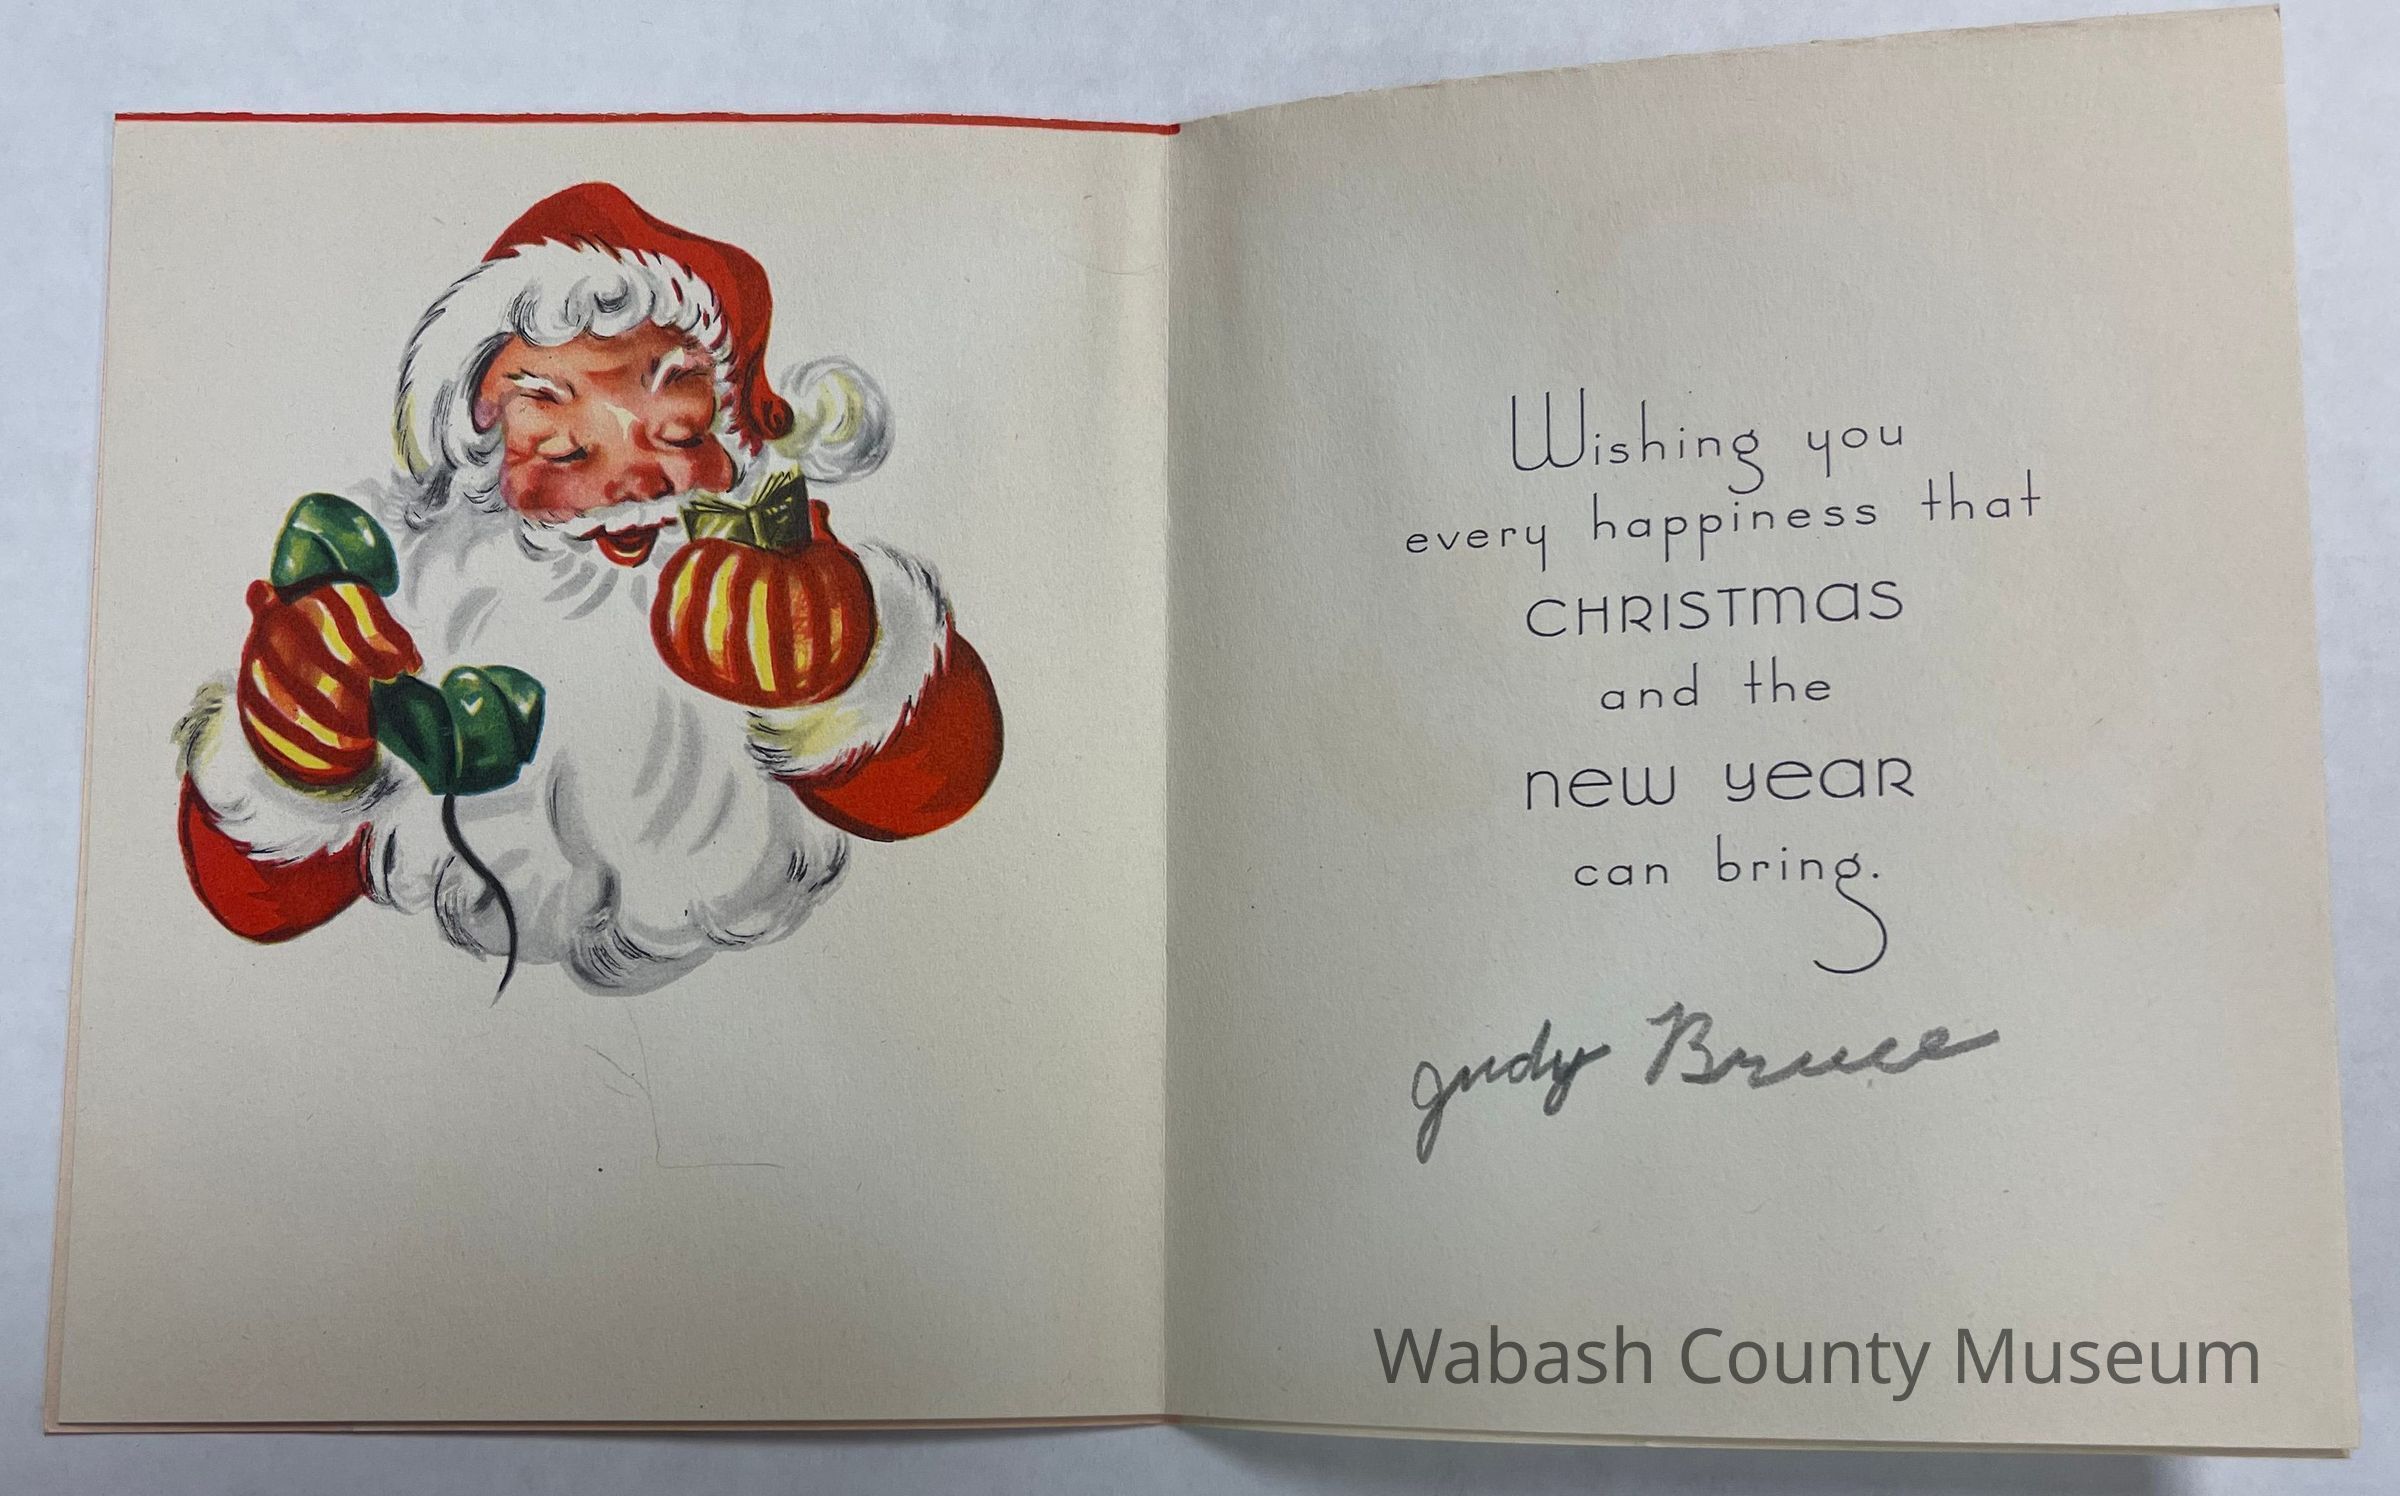 Wishing you
every happiness that
CHRISTmas
and the
new year
can bring.
Judy Bruce
Wabash County Museum